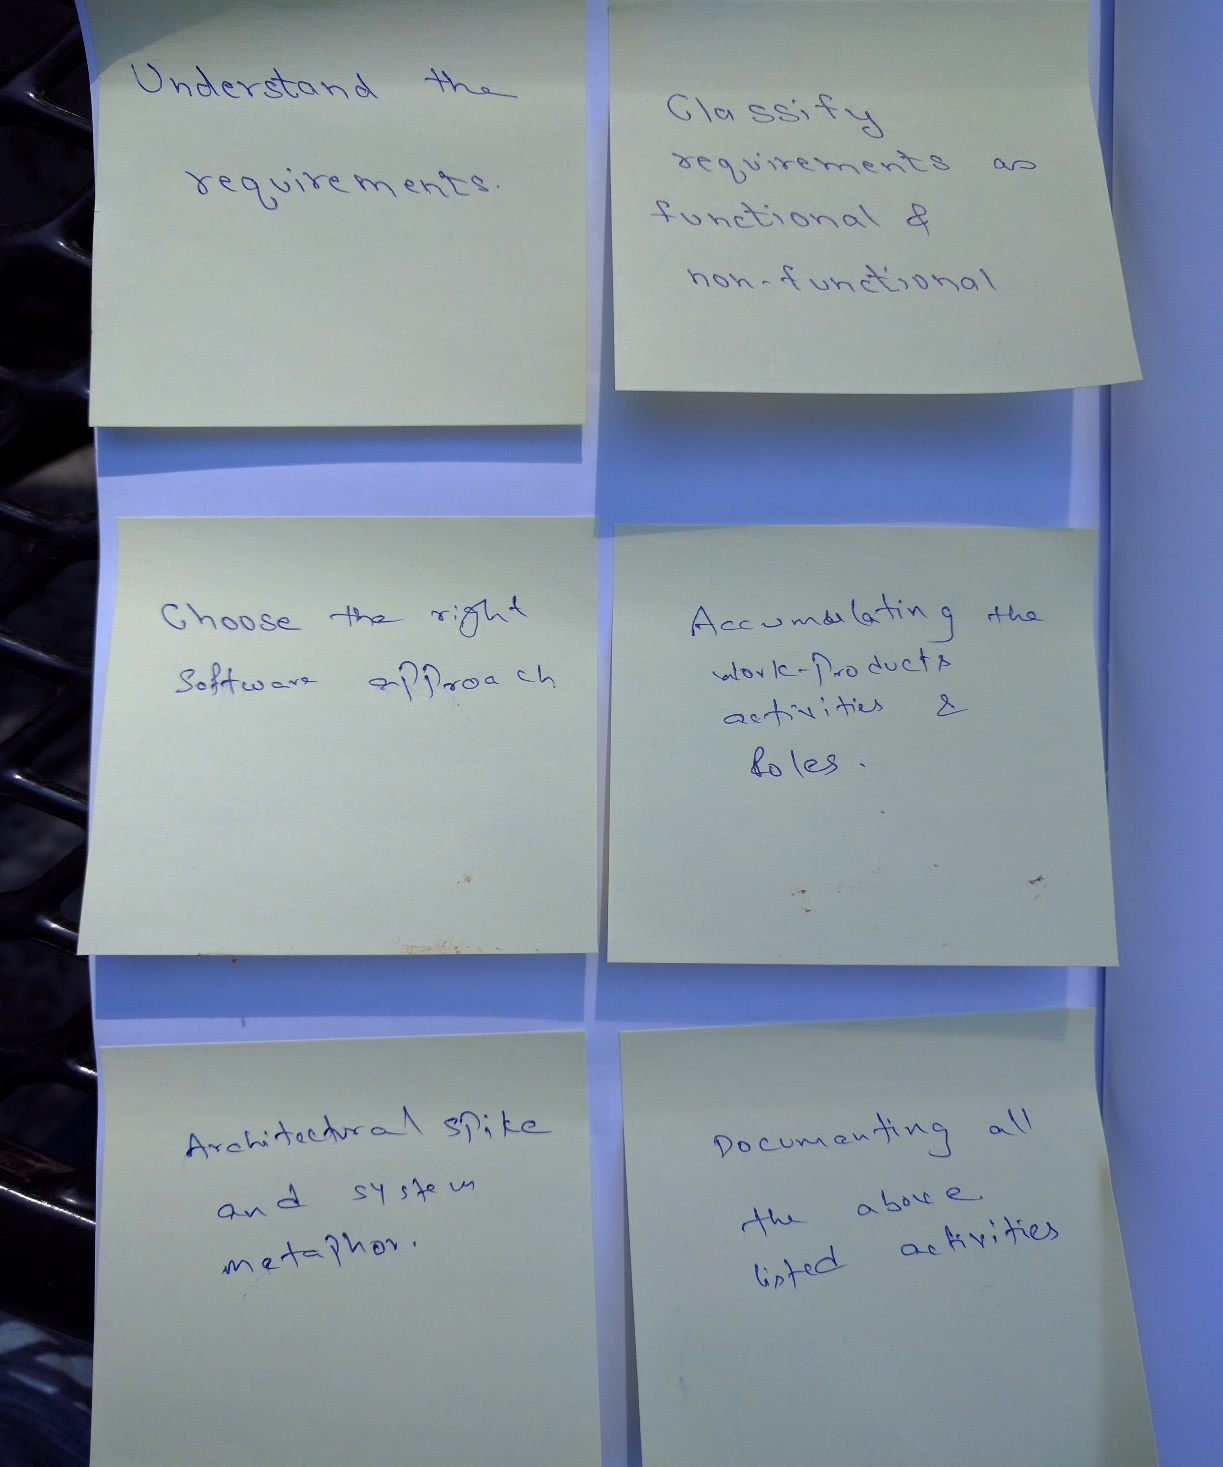 Understand the
requirements.
Classify
requirements as
functional &
non-functional
Choose the right
Software approach
Accumulating the
work-products
activities &
Roles.
Architectural spike
and system
metaphor.
Documenting all
the above
listed activities